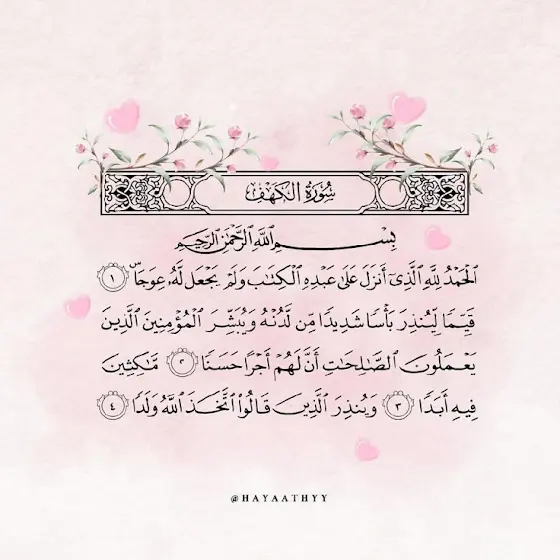 سُورَةُ الكَهْفِ
بِسْمِ اللَّهِ الرَّحْمَٰنِ الرَّحِيمِ
الْحَمْدُ لِلَّهِ الَّذِي أَنزَلَ عَلَىٰ عَبْدِهِ الْكِتَٰبَ وَلَمْ يَجْعَل لَّهُۥ عِوَجَاۜ ١
قَيِّمًا لِّيُنذِرَ بَأْسًا شَدِيدًا مِّن لَّدُنْهُ وَيُبَشِّرَ الْمُؤْمِنِينَ الَّذِينَ
يَعْمَلُونَ الصَّٰلِحَٰتِ أَنَّ لَهُمْ أَجْرًا حَسَنًا ٢ مَّٰكِثِينَ
فِيهِ أَبَدًا ٣ وَيُنذِرَ الَّذِينَ قَالُوا۟ اتَّخَذَ اللَّهُ وَلَدًا ٤
@HAYAATHYY